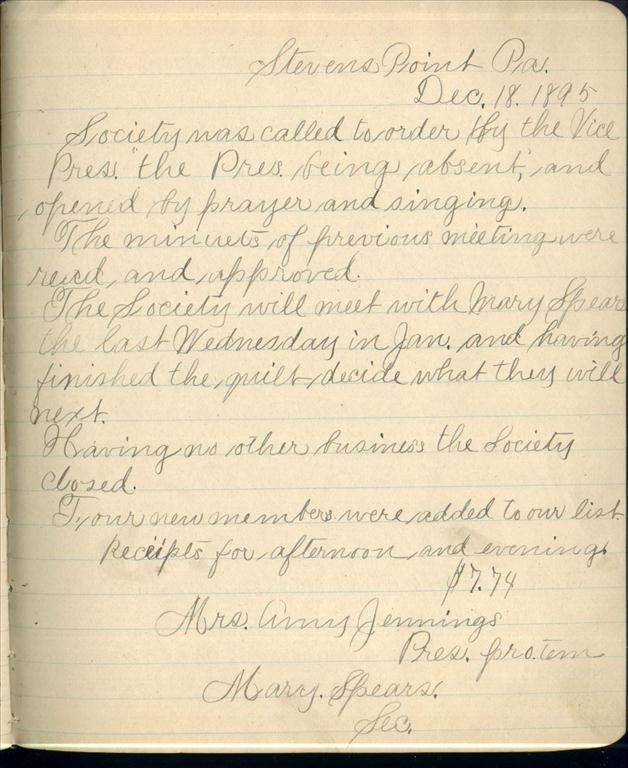 Stevens Point Pa.
Dec. 18. 1895
Society was called to order by the Vice
Pres. "the Pres. being absent", and
opened by prayer and singing.
The minuets of previous meeting were
read, and approved.
The Society will meet with Mary Spears
the last Wednesday in Jan. and having
finished the quilt decide what they will
next.
Having no other business the Society
closed.
Four new members were added to our list.
Receipts for afternoon and evening.
$7.74
Mrs. Amy Jennings
Pres. pro.tem
Mary. Spears.
Sec.